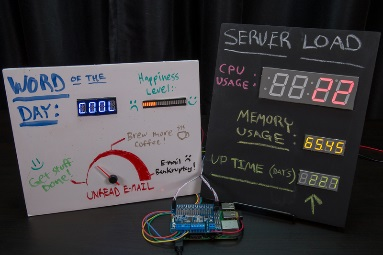 WORD OF THE
DAY:
COOL
Happiness
Level:
Brew more
Coffee!
Get stuff
Done!
E-mail
Bankruptcy!
UNREAD E-MAIL
SERVER LOAD
CPU
USAGE:
22
MEMORY
USAGE:
6545
UP TIME (DAYS)
227